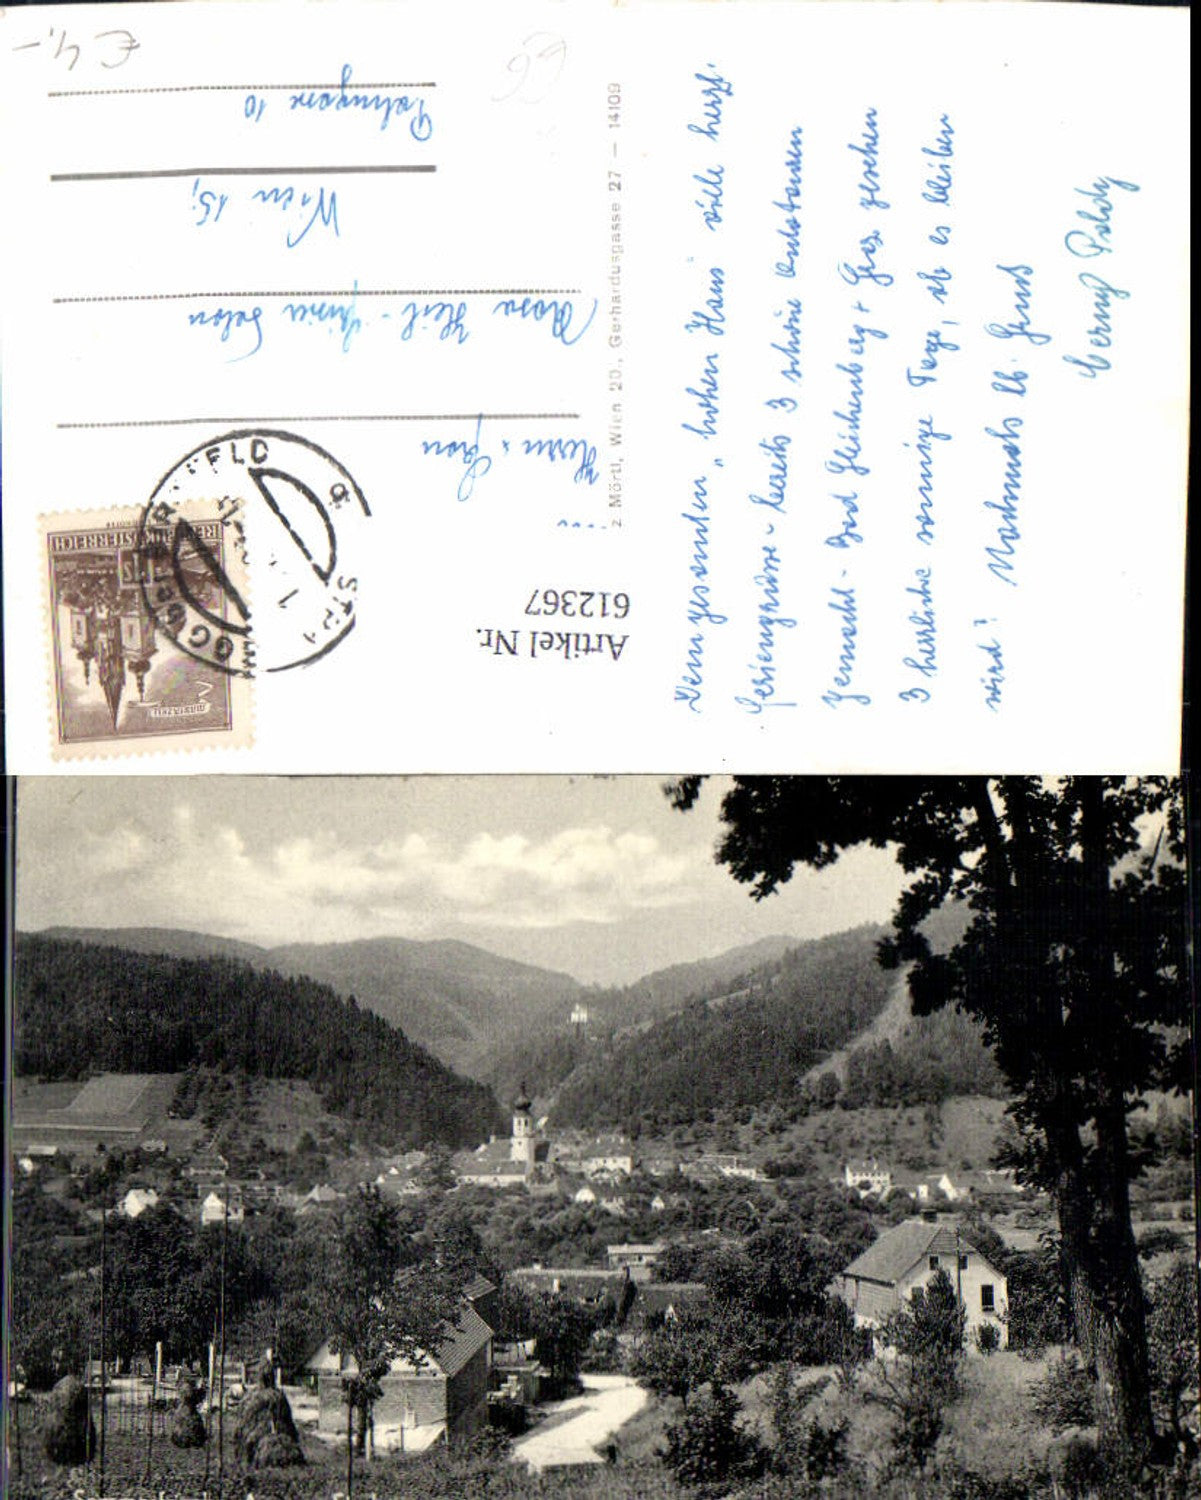 € 4,-
Dem gesamten „hohen Haus" viele herzl.
Feriengrüsse - bereits 3 schöne Autotouren
gemacht - Bad Gleichenberg + Graz gesehen
3 herrliche sonnige Tage, ob es bleiben
wird? Nochmals lb. Gruß
Cerny Poldy
z Mörtl, Wien 20., Gerhardusgasse 27 — 14109
Herrn u Frau
Rosa Heil - Frisier Salon
Wien 15,
Palmgasse 10
Artikel Nr.
612367
REPUBLIK ÖSTERREICH
MARIAZELL